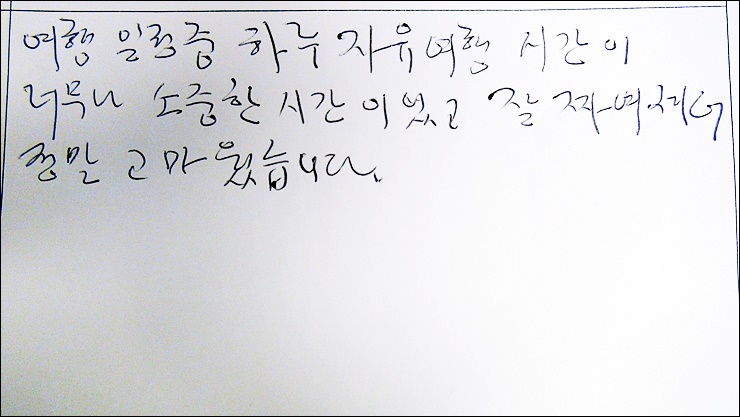 여행 일정중 하루 자유여행 시간이
너무나 소중한 시간이었고 잘 짜여져
정말 고마웠습니다.